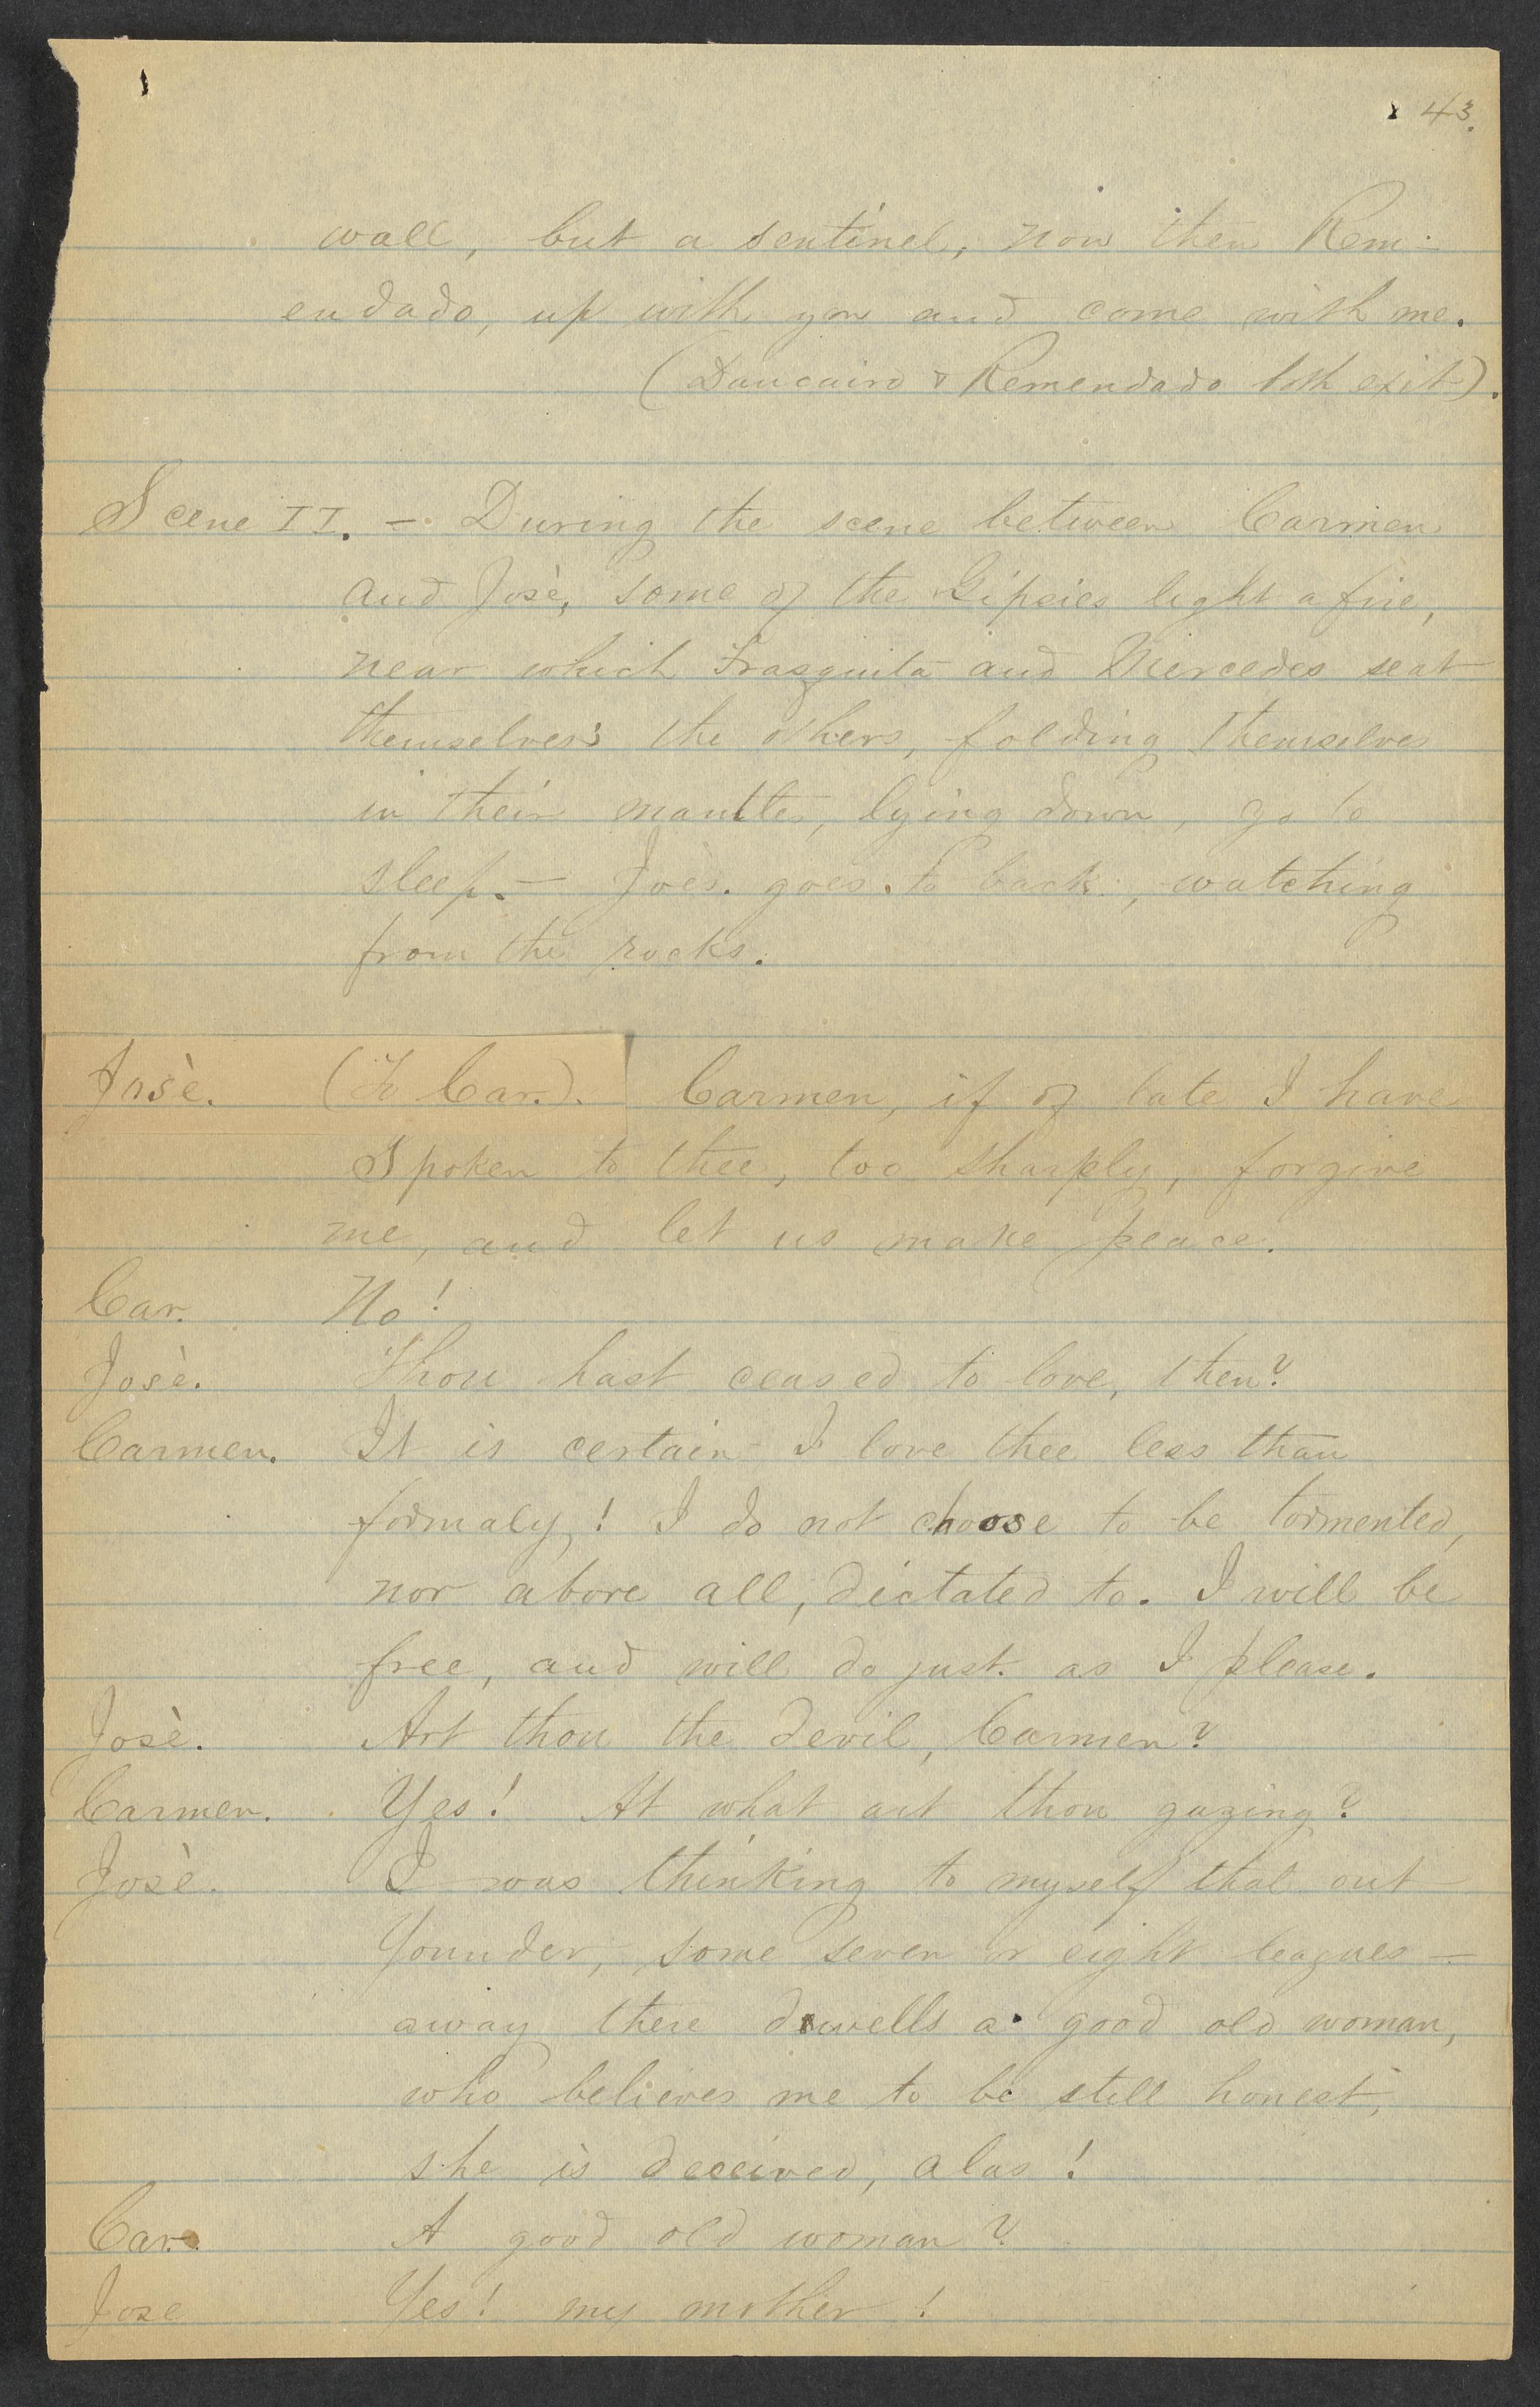 43.
wall, but a sentinel, now then Rem-
endado, up with you and come with me.
(Dancairo & Remendado both exit).
Scene II. - During the scene between Carmen
and Josè, some of the Gipsies light a fire,
near which Frasquita and Mercedes seat
themselves; the others, folding themselves
in their mantles, lying down, go to
sleep. - Joès. goes to back, watching
from the rocks.
Josè. (To Car.). Carmen, if of late I have
Spoken to thee, too sharply, forgive
me, and let us make peace.
Car. No!
Josè. Thou hast ceased to love, then?
Carmen. It is certain I love thee less than
formaly! I do not choose to be tormented,
nor above all, dictated to. I will be
free, and will do just as I please.
Josè. Art thou the devil, Carmen?
Carmen. Yes! At what art thou gazing?
Josè. I was thinking to myself that out
Younder, some seven or eight leagues -
away there dwells a good old woman,
who believes me to be still honest,
she is deceived, alas!
Car. A good old woman?
Jose Yes! my mother!